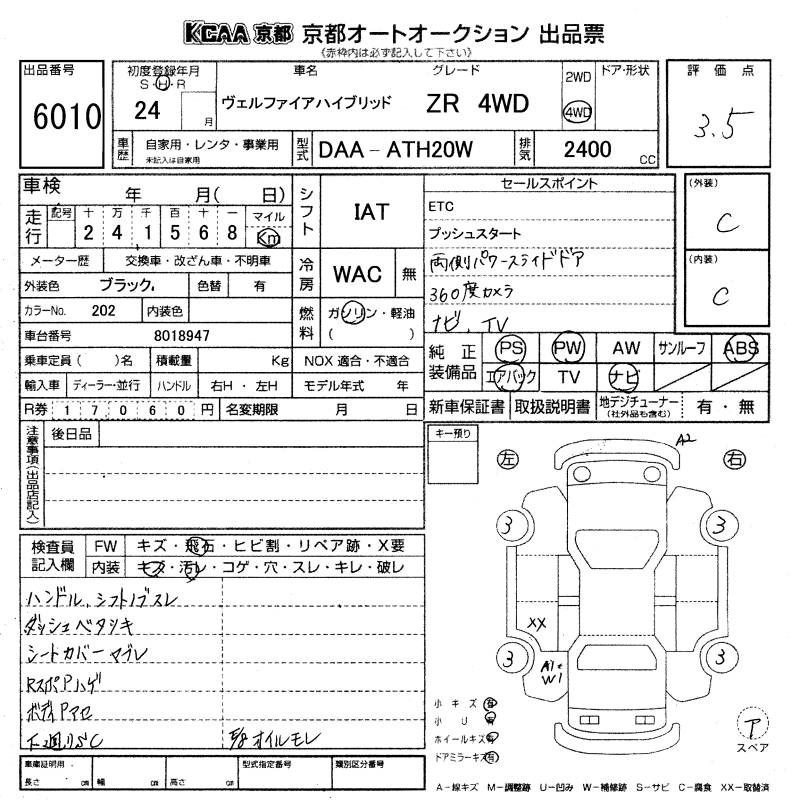 KCAA 京都 京都オートオークション 出品票
《赤枠内は必ず記入して下さい》
出品番号
6010
初度登録年月
S・H・R
24
月
車名
ヴェルファイアハイブリッド
グレード
ZR 4WD
2WD
4WD
ドア・形状
評価点
3.5
車歴
自家用・レンタ・事業用
未記入は自家用
型式
DAA-ATH20W
排気
2400
cc
車検 年 月( 日)
走行
記号 十 万 千 百 十 一
2 4 1 5 6 8
マイル
Km
メーター歴 交換車・改ざん車・不明車
外装色 ブラック 色替 有
カラーNo. 202 内装色
車台番号 8018947
乗車定員( )名 積載量 Kg
輸入車 ディーラー・並行 ハンドル 右H・左H
R券 17060円 名変期限 月 日
シフト
IAT
冷房
WAC
無
燃料
ガソリン・軽油
( )
NOX 適合・不適合
モデル年式 年
セールスポイント
ETC
プッシュスタート
両側パワースライドドア
360度カメラ
ナビ、TV
(外装)
C
(内装)
C
純正装備品
PS PW AW サンルーフ ABS
エアバック TV ナビ
新車保証書 取扱説明書 地デジチューナー
(社外品も含む)
有・無
注意事項(出品店記入)
後日品
キー預り
左
右
A2
3
3
XX
3
3
A1
W1
検査員記入欄
FW キズ・飛石・ヒビ割・リペア跡・X要
内装 キズ・汚レ・コゲ・穴・スレ・キレ・破レ
ハンドル、シフトノブスレ
ダッシュベタツキ
シートカバーマブレ
RスポPハゲ
ボディPアセ
下廻りSC
オイルモレ
小キズ有
小U有
ホイールキズ有
ドアミラーキズ有
ア
スペア
車庫証明用
長さ cm 幅 cm 高さ cm
型式指定番号
類別区分番号
A−線キズ M−調整跡 U−凹み W−補修跡 S−サビ C−腐食 XX−取替済